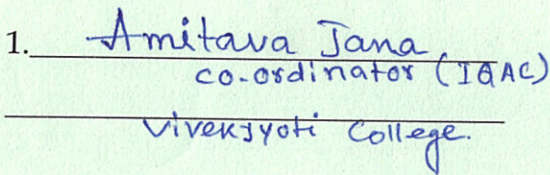 1. Amitava Jana
co-ordinator (IQAC)
Vivekjyoti College.